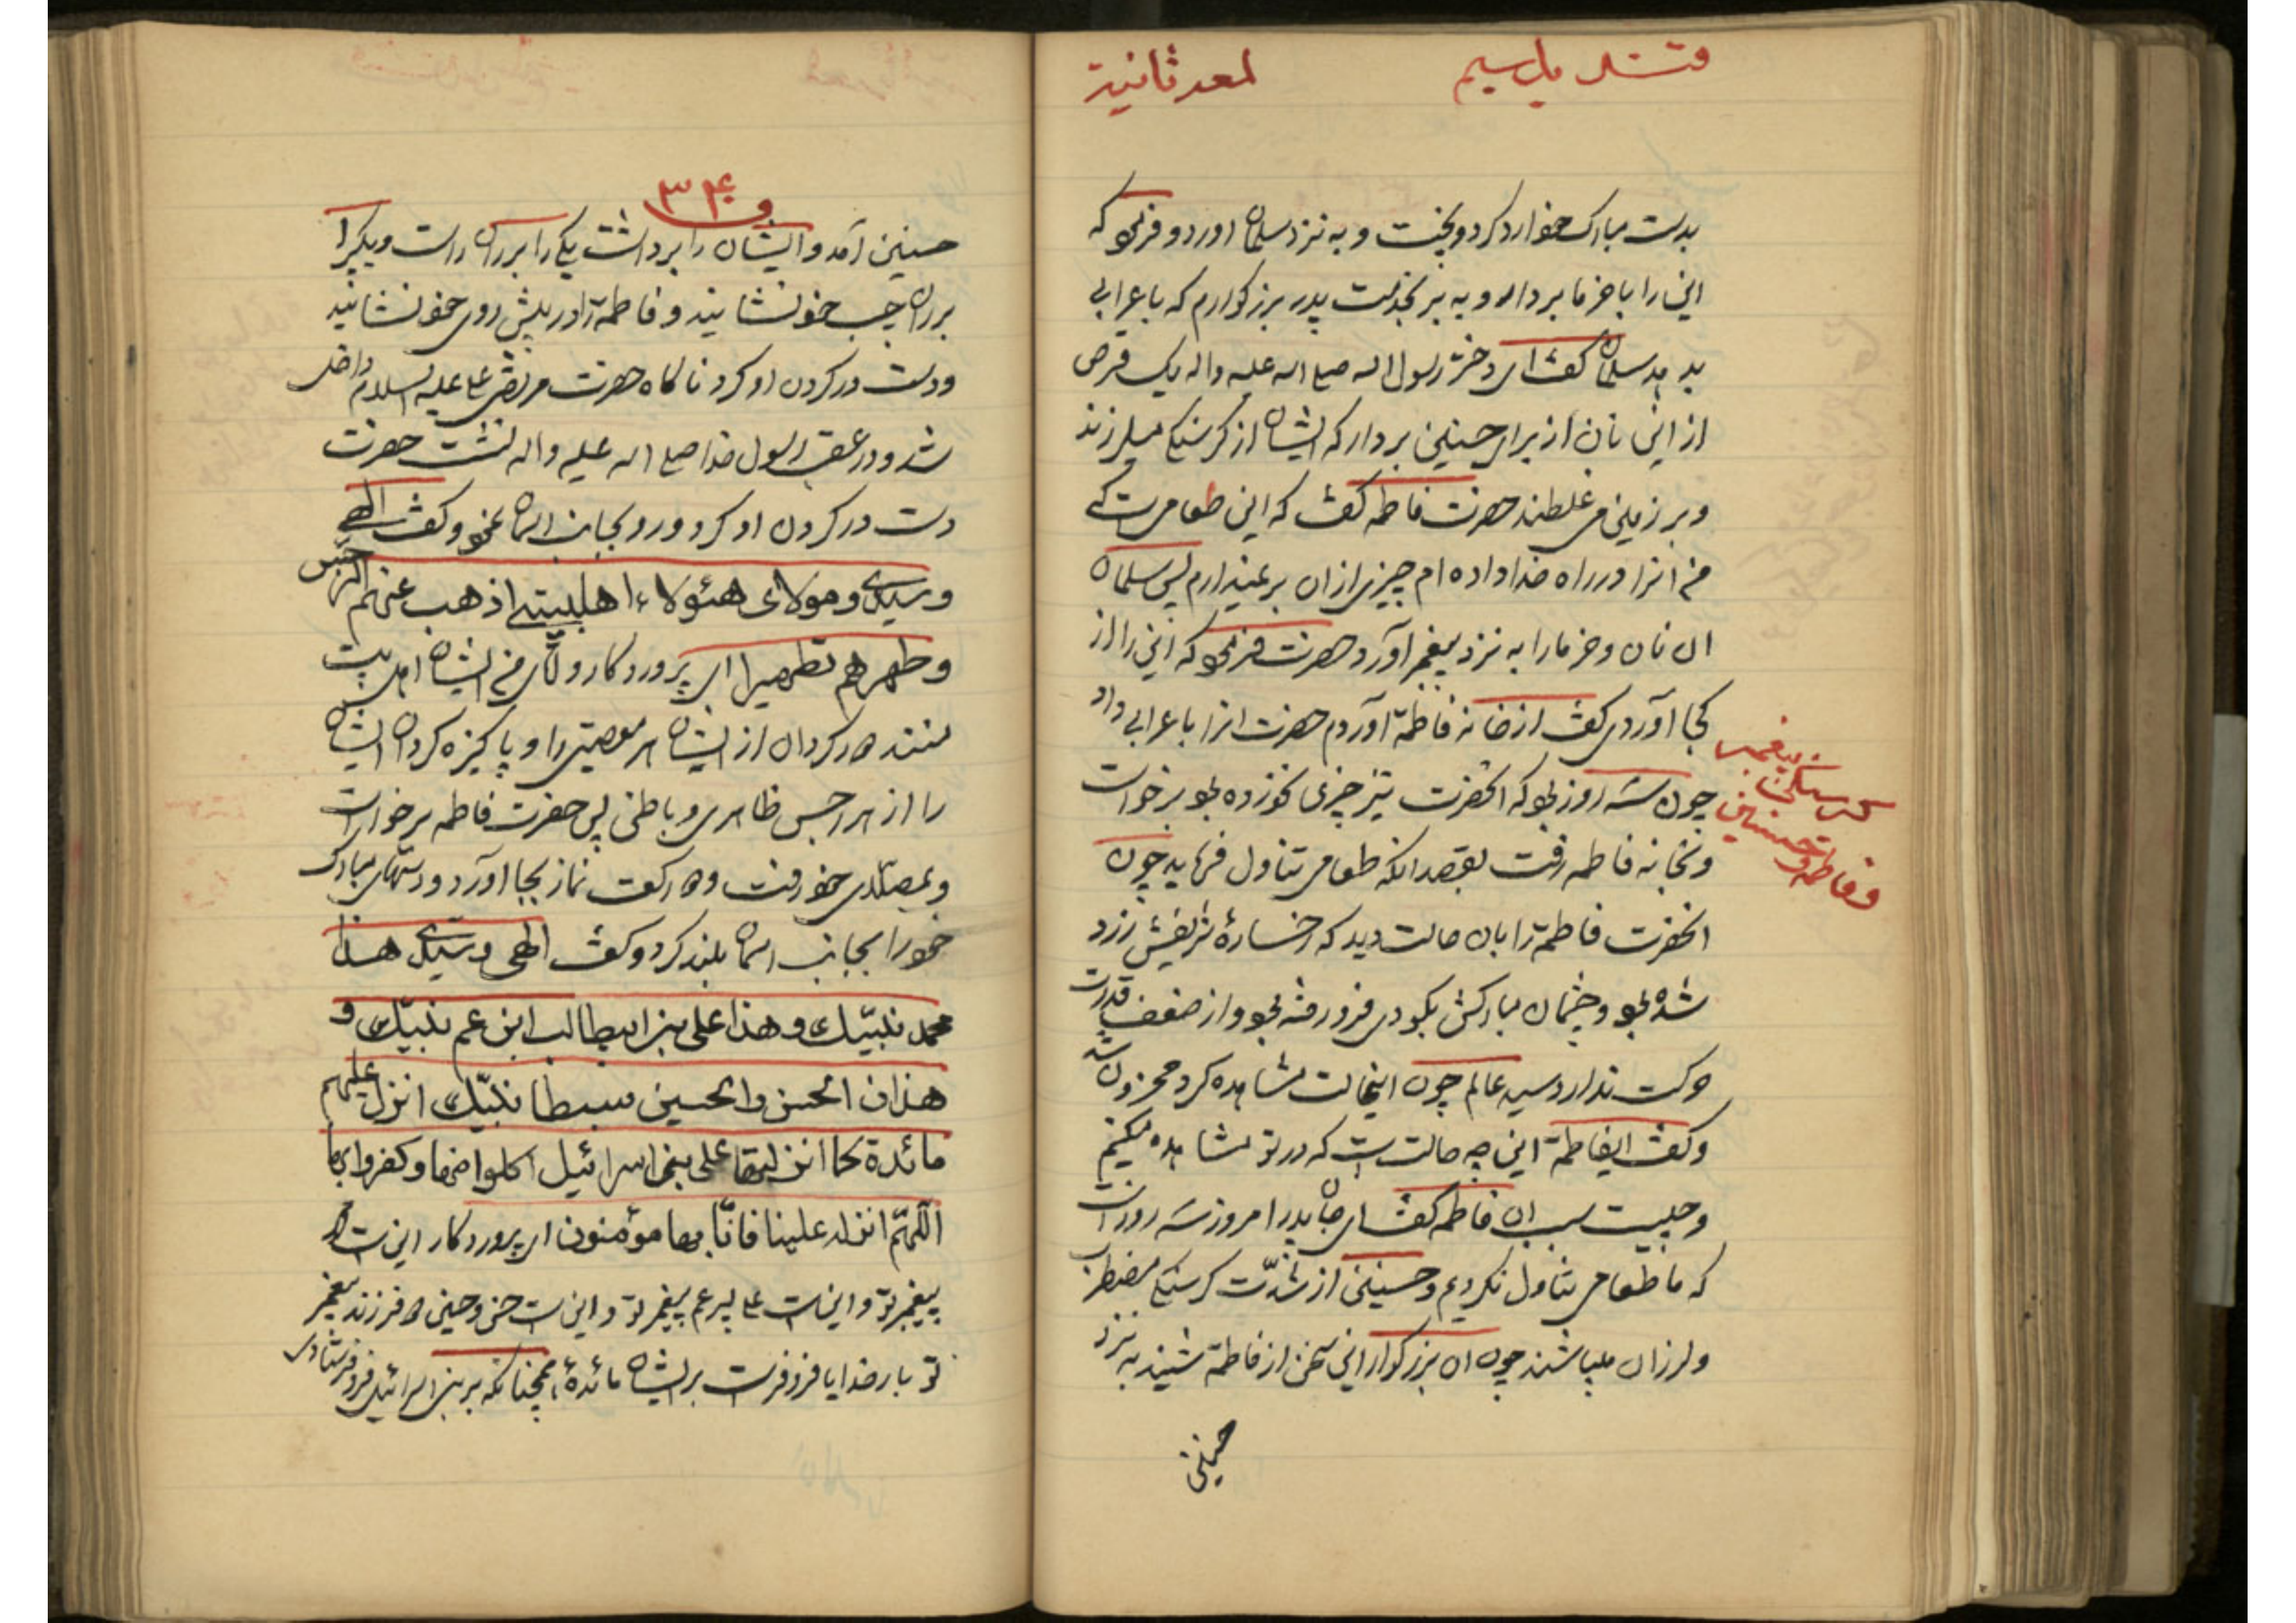 لمعه ثانیة
بدست مبارک خوارد کرد و پخت و به نزد سلمان اورد و فرمود که
این را با خرما بردار و به بر بخدمت پدر بزرگوارم که باعرابی
بدهد سلمان گفت ای دختر رسول اله صلی اله علیه واله یک قرص
از این نان از برای حسنین بردار که ایشان از گرسنگی میلرزند
و بر زمین می غلطند حضرت فاطمه گفت که این طعامی است که
من انرا در راه خدا داده ام چیزی از ان بر نمیدارم پس سلمان
ان نان و خرما را به نزد پیغمبر آورد حضرت فرمود که این را از
کجا آوردی گفت از خانه فاطمة آوردم حضرت انرا باعرابی داد
گرسنگی پیغمبر
و فاطمه و حسنین
چون سه روز بود که انحضرت نیز چیزی نخورده بود برخواست
و بخانه فاطمه رفت بقصد انکه طعامی تناول فرماید چون
انحضرت فاطمة را بان حالت دید که رخسارهٔ شریفش زرد
شده بود و چشمان مبارکش بگودی فرو رفته بود و از ضعف قدرت
حرکت ندارد سید عالم چون اینحالت مشاهده کرد محزون شد
و گفت ایفاطمة این چه حالت است که در تو مشاهده میکنم
و چیست سبب ان فاطمه گفت ای جان پدر امروز سه روز است
که ما طعامی تناول نکردیم و حسنین از شدّت گرسنگی مضطرب
و لرزان میباشند چون ان بزرگوار این سخن از فاطمة شنید به نزد
حسنین
۳۴
حسنین آمد و ایشان را برداشت یکی را بر ران راست و یکیرا
بر ران چپ خود نشانید و فاطمة را در پیش روی خود نشانید
و دست در گردن او کرد ناگاه حضرت مرتضی علی علیه السلام داخل
شد و در عقب رسول خدا صلی اله علیه واله نشست حضرت
دست در گردن او کرد و رو بجانب اسمان نمود و گفت الهی
و سیدی و مولای هئولاء اهلبیتی اذهب عنهم الرجس
و طهرهم تطهیرا ای پروردگار و اقای من ایشان اهل بیت
منند دور گردان از ایشان هر معصیتی را و پاکیزه گردان ایشان
را از هر رجس ظاهری و باطنی پس حضرت فاطمه برخواست
و بمصلای خود رفت و دو رکعت نماز بجا آورد و دستهای مبارک
خود را بجانب اسمان بلند کرد و گفت الهی و سیدی هذا
محمد نبیّک و هذا علی بن ابیطالب ابن عم نبیّک و
هذان الحسن والحسین سبطا نبیّک انزل علیهم
مائدة کما انزلتها علی بنی اسرائیل اکلوا منها و کفروا بها
اللهمّ انزله علینا فانّا بها مؤمنون ای پروردگار این است محمد
پیغمبر تو و این است علی پسر عم پیغمبر تو و این است حسن و حسین دو فرزند پیغمبر
تو بار خدایا فرو فرست بر ایشان مائدهٔ همچنانکه بر بنی اسرائیل فرو فرستادی